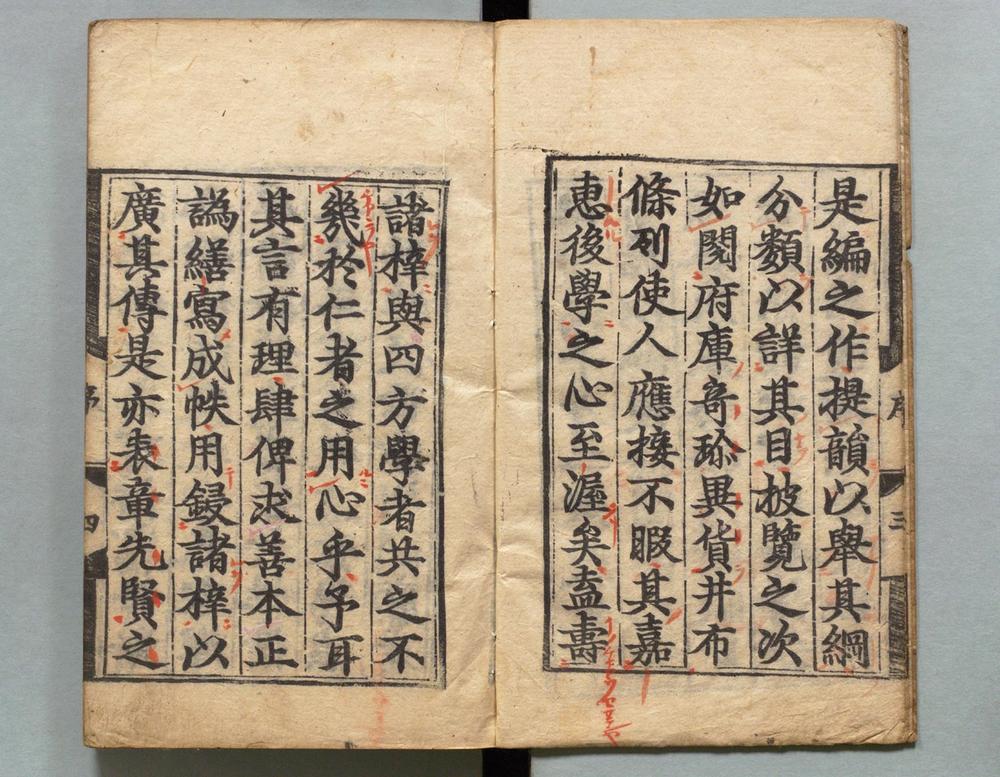 是編之作提韻以舉其綱
分類以詳其目披覽之次
如閱府庫奇珎異貨井布
條列使人應接不暇其嘉
惠後學之心至渥矣盍壽
序
三
諸梓與四方學者共之不
幾於仁者之用心乎予耳
其言有理肆俾求善本正
譌繕寫成帙用鋟諸梓以
廣其傳是亦表章先賢之
序
四